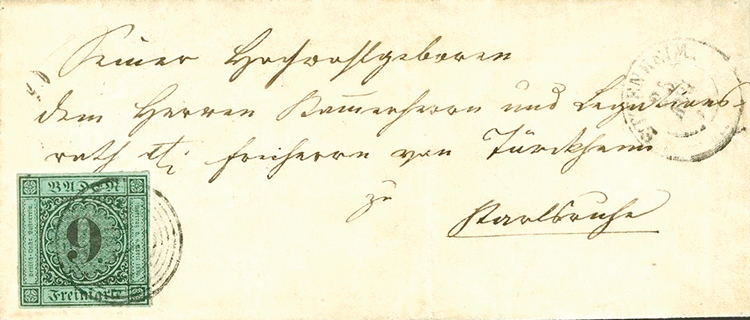 Seiner Hochwohlgeboren
dem Herren Kammerherrn und Legations-
rath Freiherrn von Türckheim
zu Karlsruhe
ETTENHEIM.
BADEN
9.
Freimarke